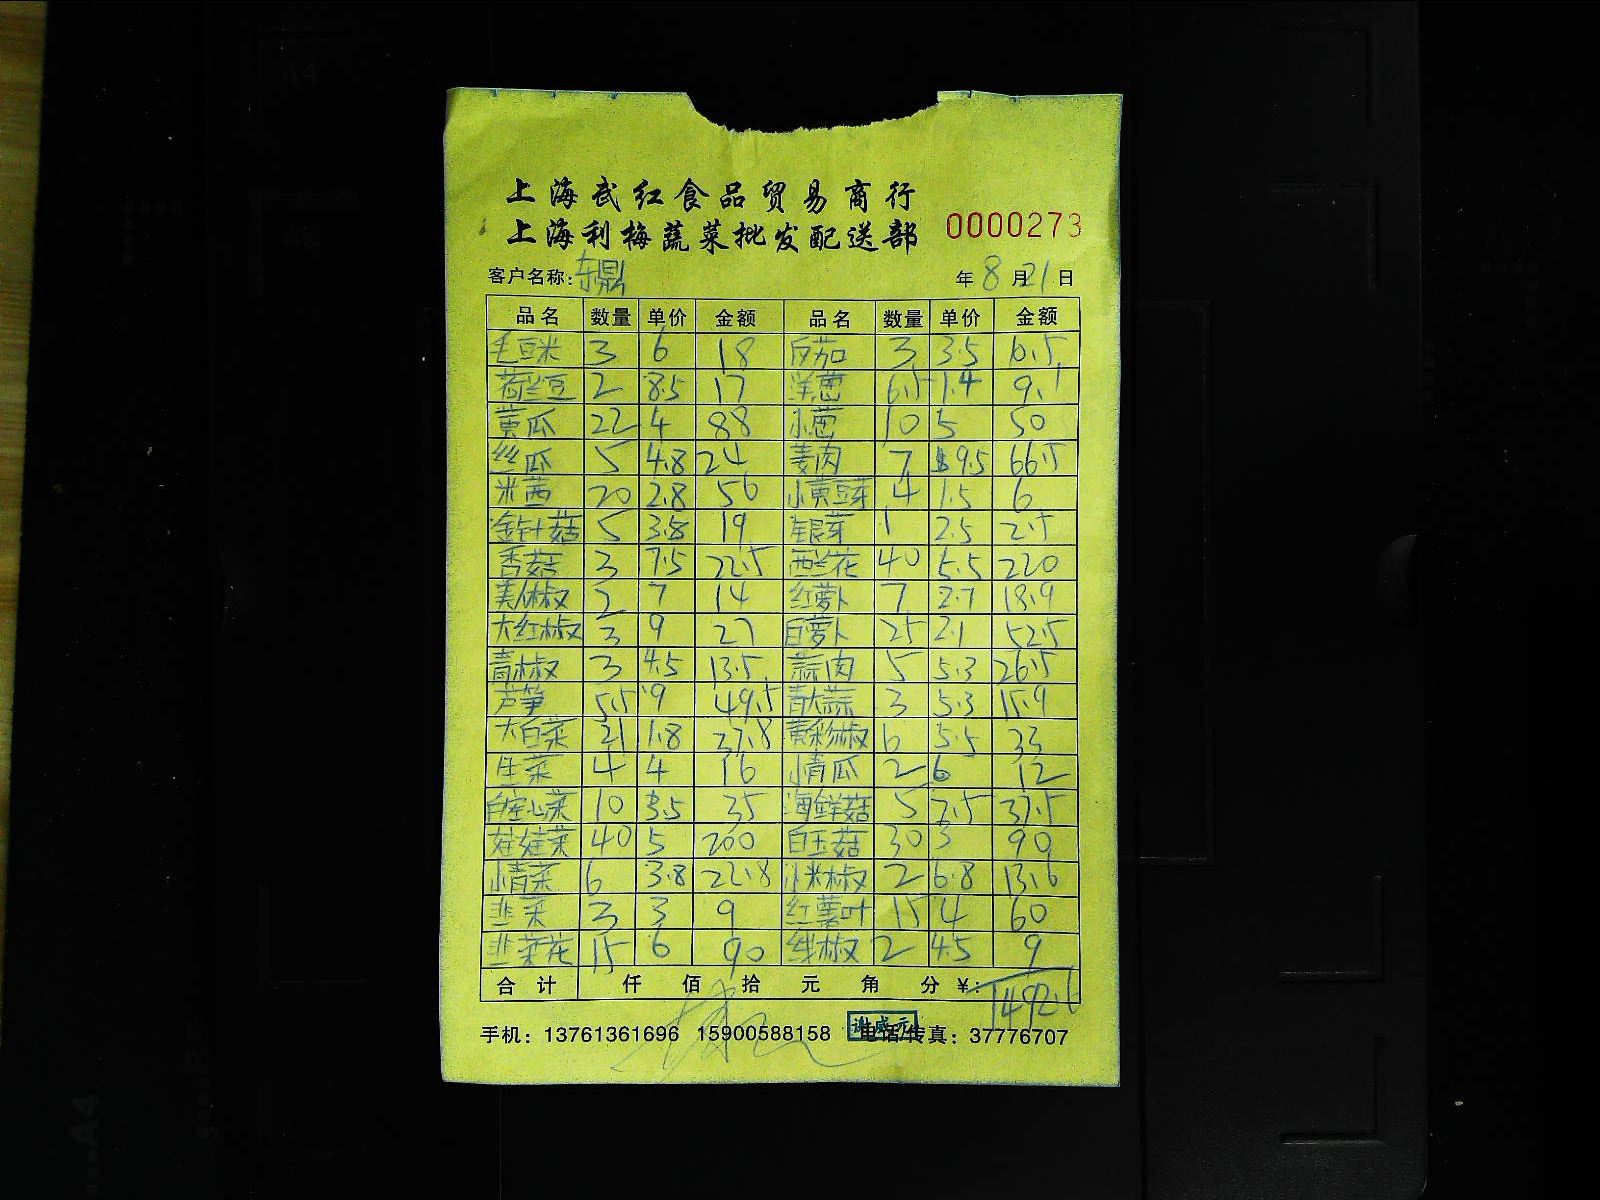 上海武红食品贸易商行
上海利梅蔬菜批发配送部 0000273
客户名称:东鼎 年8月21日
品名 数量 单价 金额 品名 数量 单价 金额
毛豆米 3 6 18 反茄 3 3.5 10.5
荷兰豆 2 8.5 17 洋葱 6.5 1.4 9.1
黄瓜 22 4 88 小葱 10 5 50
丝瓜 5 4.8 24 姜肉 7 9.5 66.5
米茜 20 2.8 56 小黄豆芽 4 1.5 6
金针菇 5 3.8 19 银芽 1 2.5 2.5
香菇 3 7.5 22.5 西兰花 40 5.5 220
美人椒 2 7 14 红萝卜 7 2.7 18.9
大红椒 3 9 27 白萝卜 25 2.1 52.5
青椒 3 4.5 13.5 蒜肉 5 5.3 26.5
芦笋 5.5 9 49.5 青大蒜 3 5.3 15.9
大白菜 21 1.8 37.8 黄彩椒 6 5.5 33
生菜 4 4 16 小青瓜 2 6 12
白空心菜 10 3.5 35 海鲜菇 5 7.5 37.5
娃娃菜 40 5 200 白玉菇 30 3 90
小青菜 6 3.8 22.8 小米椒 2 6.8 13.6
韭菜 3 3 9 红薯叶 15 4 60
韭菜花 15 6 90 线椒 2 4.5 9
合计 仟 佰 拾 元 角 分 ¥: 1492.6
手机: 13761361696 15900588158 电话/传真: 37776707
谢盛元